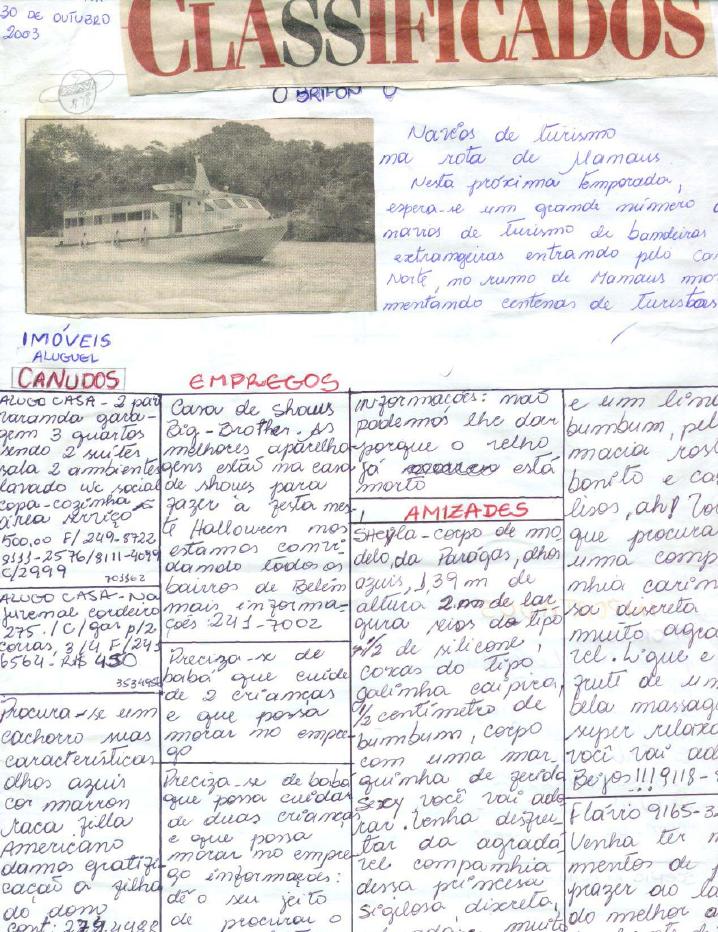 30 DE OUTUBRO
2003
CLASSIFICADOS
O BRIFON
Navios de turismo
na rota de Manaus.
Nesta próxima temporada,
espera-se um grande número
navios de turismo de bandeiras
extrangeiras entrando pelo
Norte, no rumo de Manaus
mentando centenas de turistas
IMÓVEIS
ALUGUEL
CANUDOS
ALUGO CASA - 2 pav
varanda gara-
gem 3 quartos
sendo 2 suites
sala 2 ambientes
lavado wc social
copa-cozinha
área serviço
500,00 F/ 249-8722
8111-4099
C/2999
703362
ALUGO CASA - Na
Juvenal cordeiro
275. / C/gar p/2
carros, 3/4, F/241
6564. R$ 450
3534956
Procura-se um
cachorro suas
características
olhos azuis
cor marron
raca filla
Americano
damos gratifi-
cação a filha
do dono
cont: 279.4488
EMPREGOS
Casa de shows
Big-Brother. As
melhores aparelha-
gens estão na casa
de shows para
fazer a festa nes-
te Halloween nos
estamos convi-
dando todos os
bairros de Belém
mais informa-
ções: 241-7002
Preciza-se de
baba que cuide
de 2 crianças
e que possa
morar no empre-
go
Preciza-se de babá
que possa cuidar
de duas crianças
e que possa
morar no empre-
go informações:
dê o seu jeito
de procurar o
informações: não
podemos lhe dar
porque o velho
já está
morto
AMIZADES
Sheyla-corpo de mo
delo, da Paragas, olhos
azuis, 1,39 m de
altura 2 m de lar
gura seios do tipo
1/2 de silicone,
coxas do tipo
galinha caipira,
1/2 centímetro de
bumbum, corpo
com uma mar
quinha de ferida
sexy você vai ado
rar. Venha desfru-
tar da agradá
vel companhia
dessa princesa
sigilosa, discreta,
muito
e um
bumbum,
macia
bonito e
lisos, ah!
que procura
uma
nhia
sa discreta
muito
vel. Ligue e
frute de
bela
super
você vai
Bejos!!! 9118-
Flávio 9165-
Venha ter
mentos de
prazer ao
do melhor